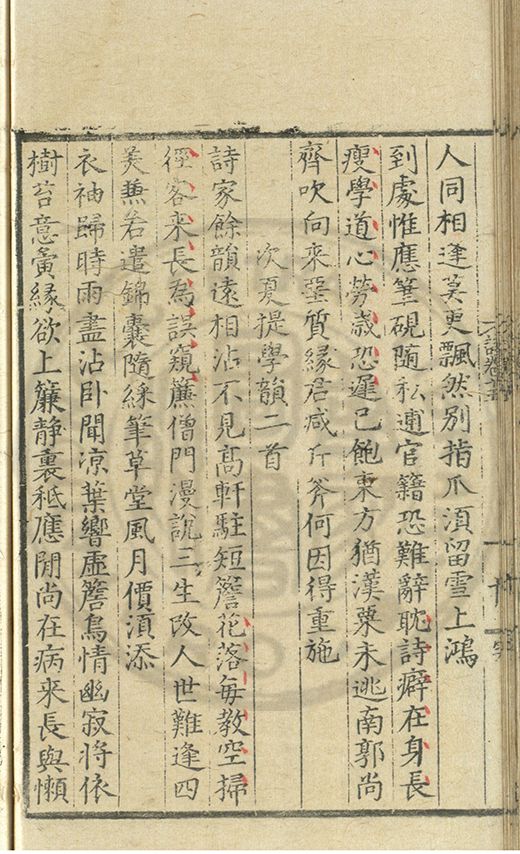 人同相逢莫更飄然別指爪湏留雪上鴻
到處惟應筆硯随私逋官籍恐難辭耽詩癖在身長
瘦學道心勞歳恐遲已飽東方猶漢粟未逃南郭尚
齊吹向来堊質縁君减斤斧何因得重施
次夏提學韻二首
詩家餘韻遠相沾不見髙軒駐短簷花落毎教空掃
徑客来長為誤窺簾僧門漫說三生改人世難逢四
美兼若遣錦囊隨綵筆草堂風月價湏添
衣袖歸時雨盡沾卧聞凉葉響虛簷鳥情幽寂將依
樹苔意夤縁欲上簾静裏秪應閒尚在病来長與懶